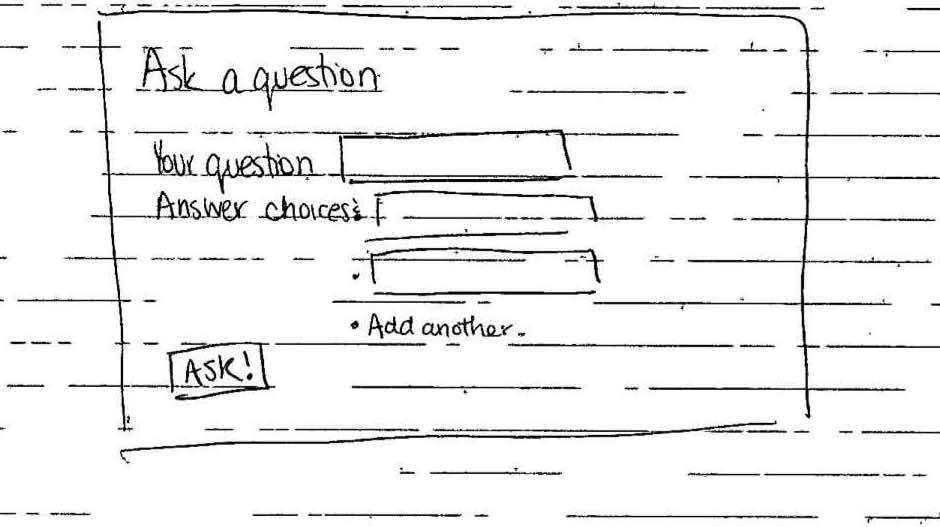 Ask a question
Your question
Answer choices:
• Add another.
ASK!